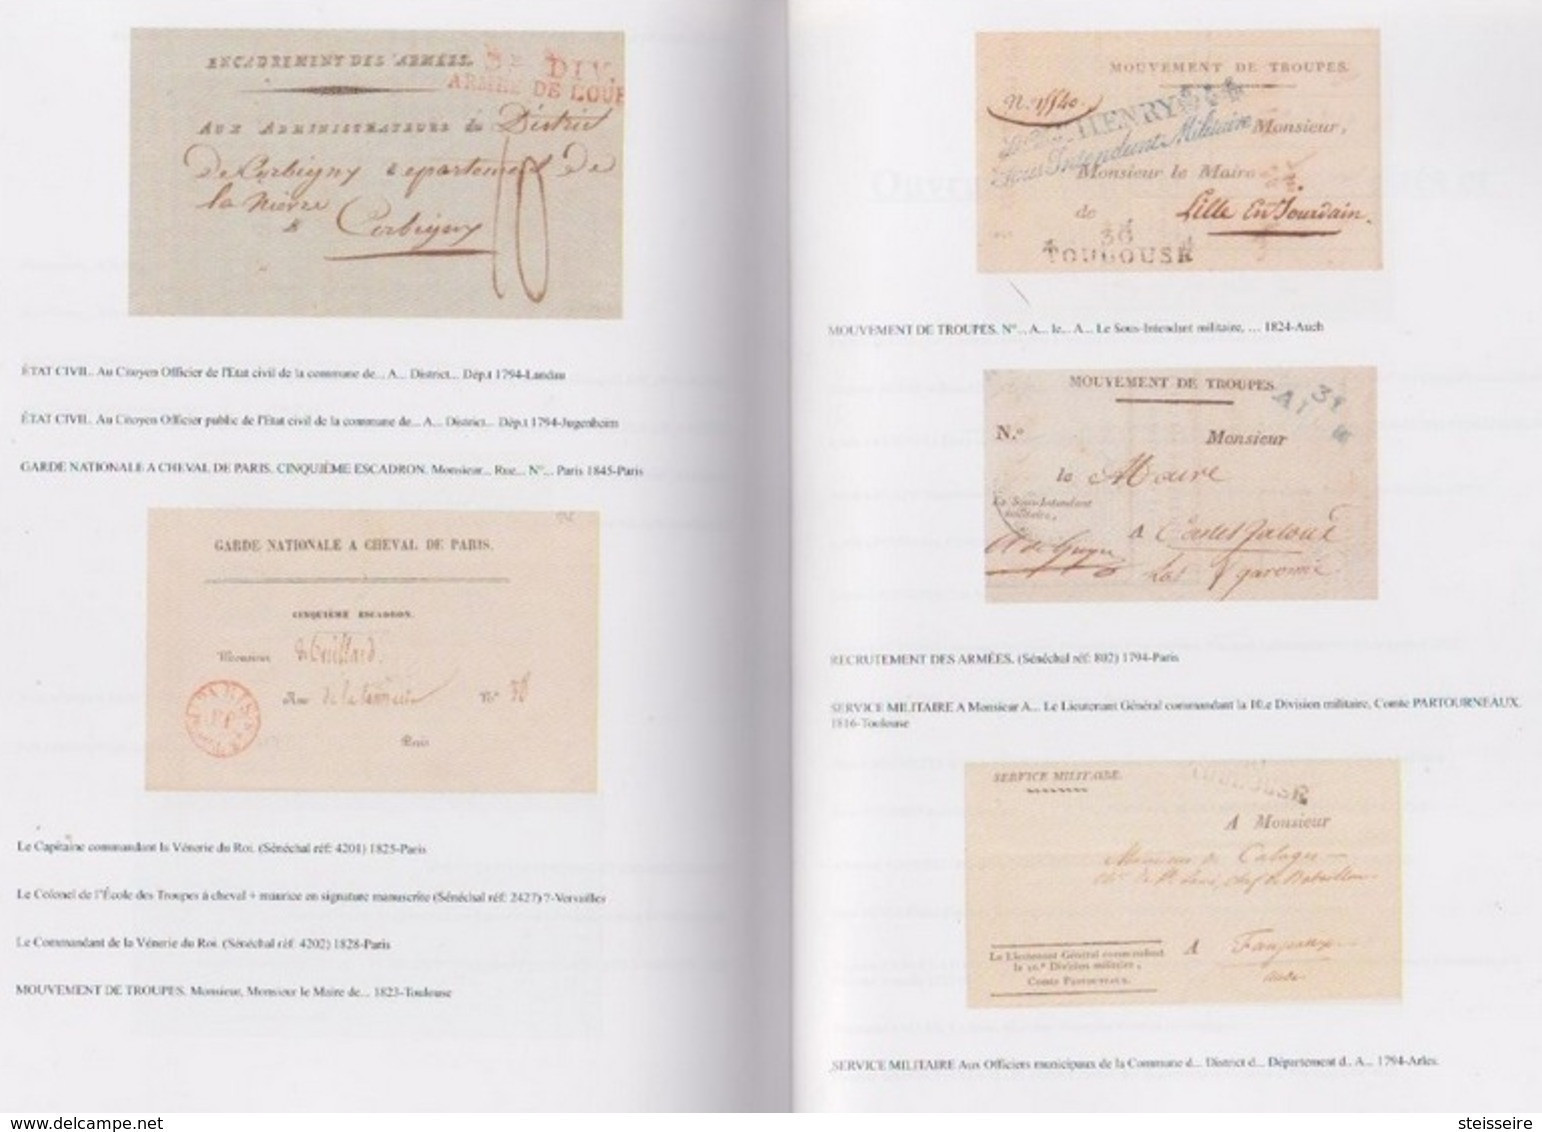 ENCADREMENT DES ARMÉES.
DIV.
ARMÉE DE L'OUE
AUX ADMINISTRATEURS du District
De Corbigny departement De
la Nievre
Corbigny
10
ÉTAT CIVIL. Au Citoyen Officier de l'Etat civil de la commune de... A... District... Dép.t 1794-Landau
ÉTAT CIVIL. Au Citoyen Officier public de l'Etat civil de la commune de... A... District... Dép.t 1794-Jugenheim
GARDE NATIONALE A CHEVAL DE PARIS. CINQUIÈME ESCADRON. Monsieur... Rue... N°... Paris 1845-Paris
GARDE NATIONALE A CHEVAL DE PARIS.
CINQUIÈME ESCADRON.
Monsieur
Rue de la N° 38
PARIS
Paris
Le Capitaine commandant la Vénerie du Roi. (Sénéchal réf: 4201) 1825-Paris
Le Colonel de l'École des Troupes à cheval + maurice en signature manuscrite (Sénéchal réf: 2427) ?-Versailles
Le Commandant de la Vénerie du Roi. (Sénéchal réf: 4202) 1828-Paris
MOUVEMENT DE TROUPES. Monsieur, Monsieur le Maire de... 1823-Toulouse
MOUVEMENT DE TROUPES.
HENRY
Sous Intendant Militaire
Monsieur,
Monsieur le Maire
de Lille En Jourdain.
30
TOULOUSE
MOUVEMENT DE TROUPES. N°... A... le... A... Le Sous-Intendant militaire, ... 1824-Auch
MOUVEMENT DE TROUPES.
N.° Monsieur
le Maire
Le Sous-Intendant
militaire,
A Castel Jaloux
Lot & garonne
RECRUTEMENT DES ARMÉES. (Sénéchal réf: 802) 1794-Paris
SERVICE MILITAIRE A Monsieur A... Le Lieutenant Général commandant la 10.e Division militaire, Comte PARTOURNEAUX.
1816-Toulouse
SERVICE MILITAIRE.
A Monsieur
Monsieur de Calages
Ch.r de St. Louis, chef de Bataillon
Le Lieutenant Général commandant
la 10.e Division militaire,
Comte PARTOUNEAUX.
A Fanjeaux
Aude
SERVICE MILITAIRE Aux Officiers municipaux de la Commune d... District d... Département d.. A... 1794-Arles.
www.delcampe.net
steisseire